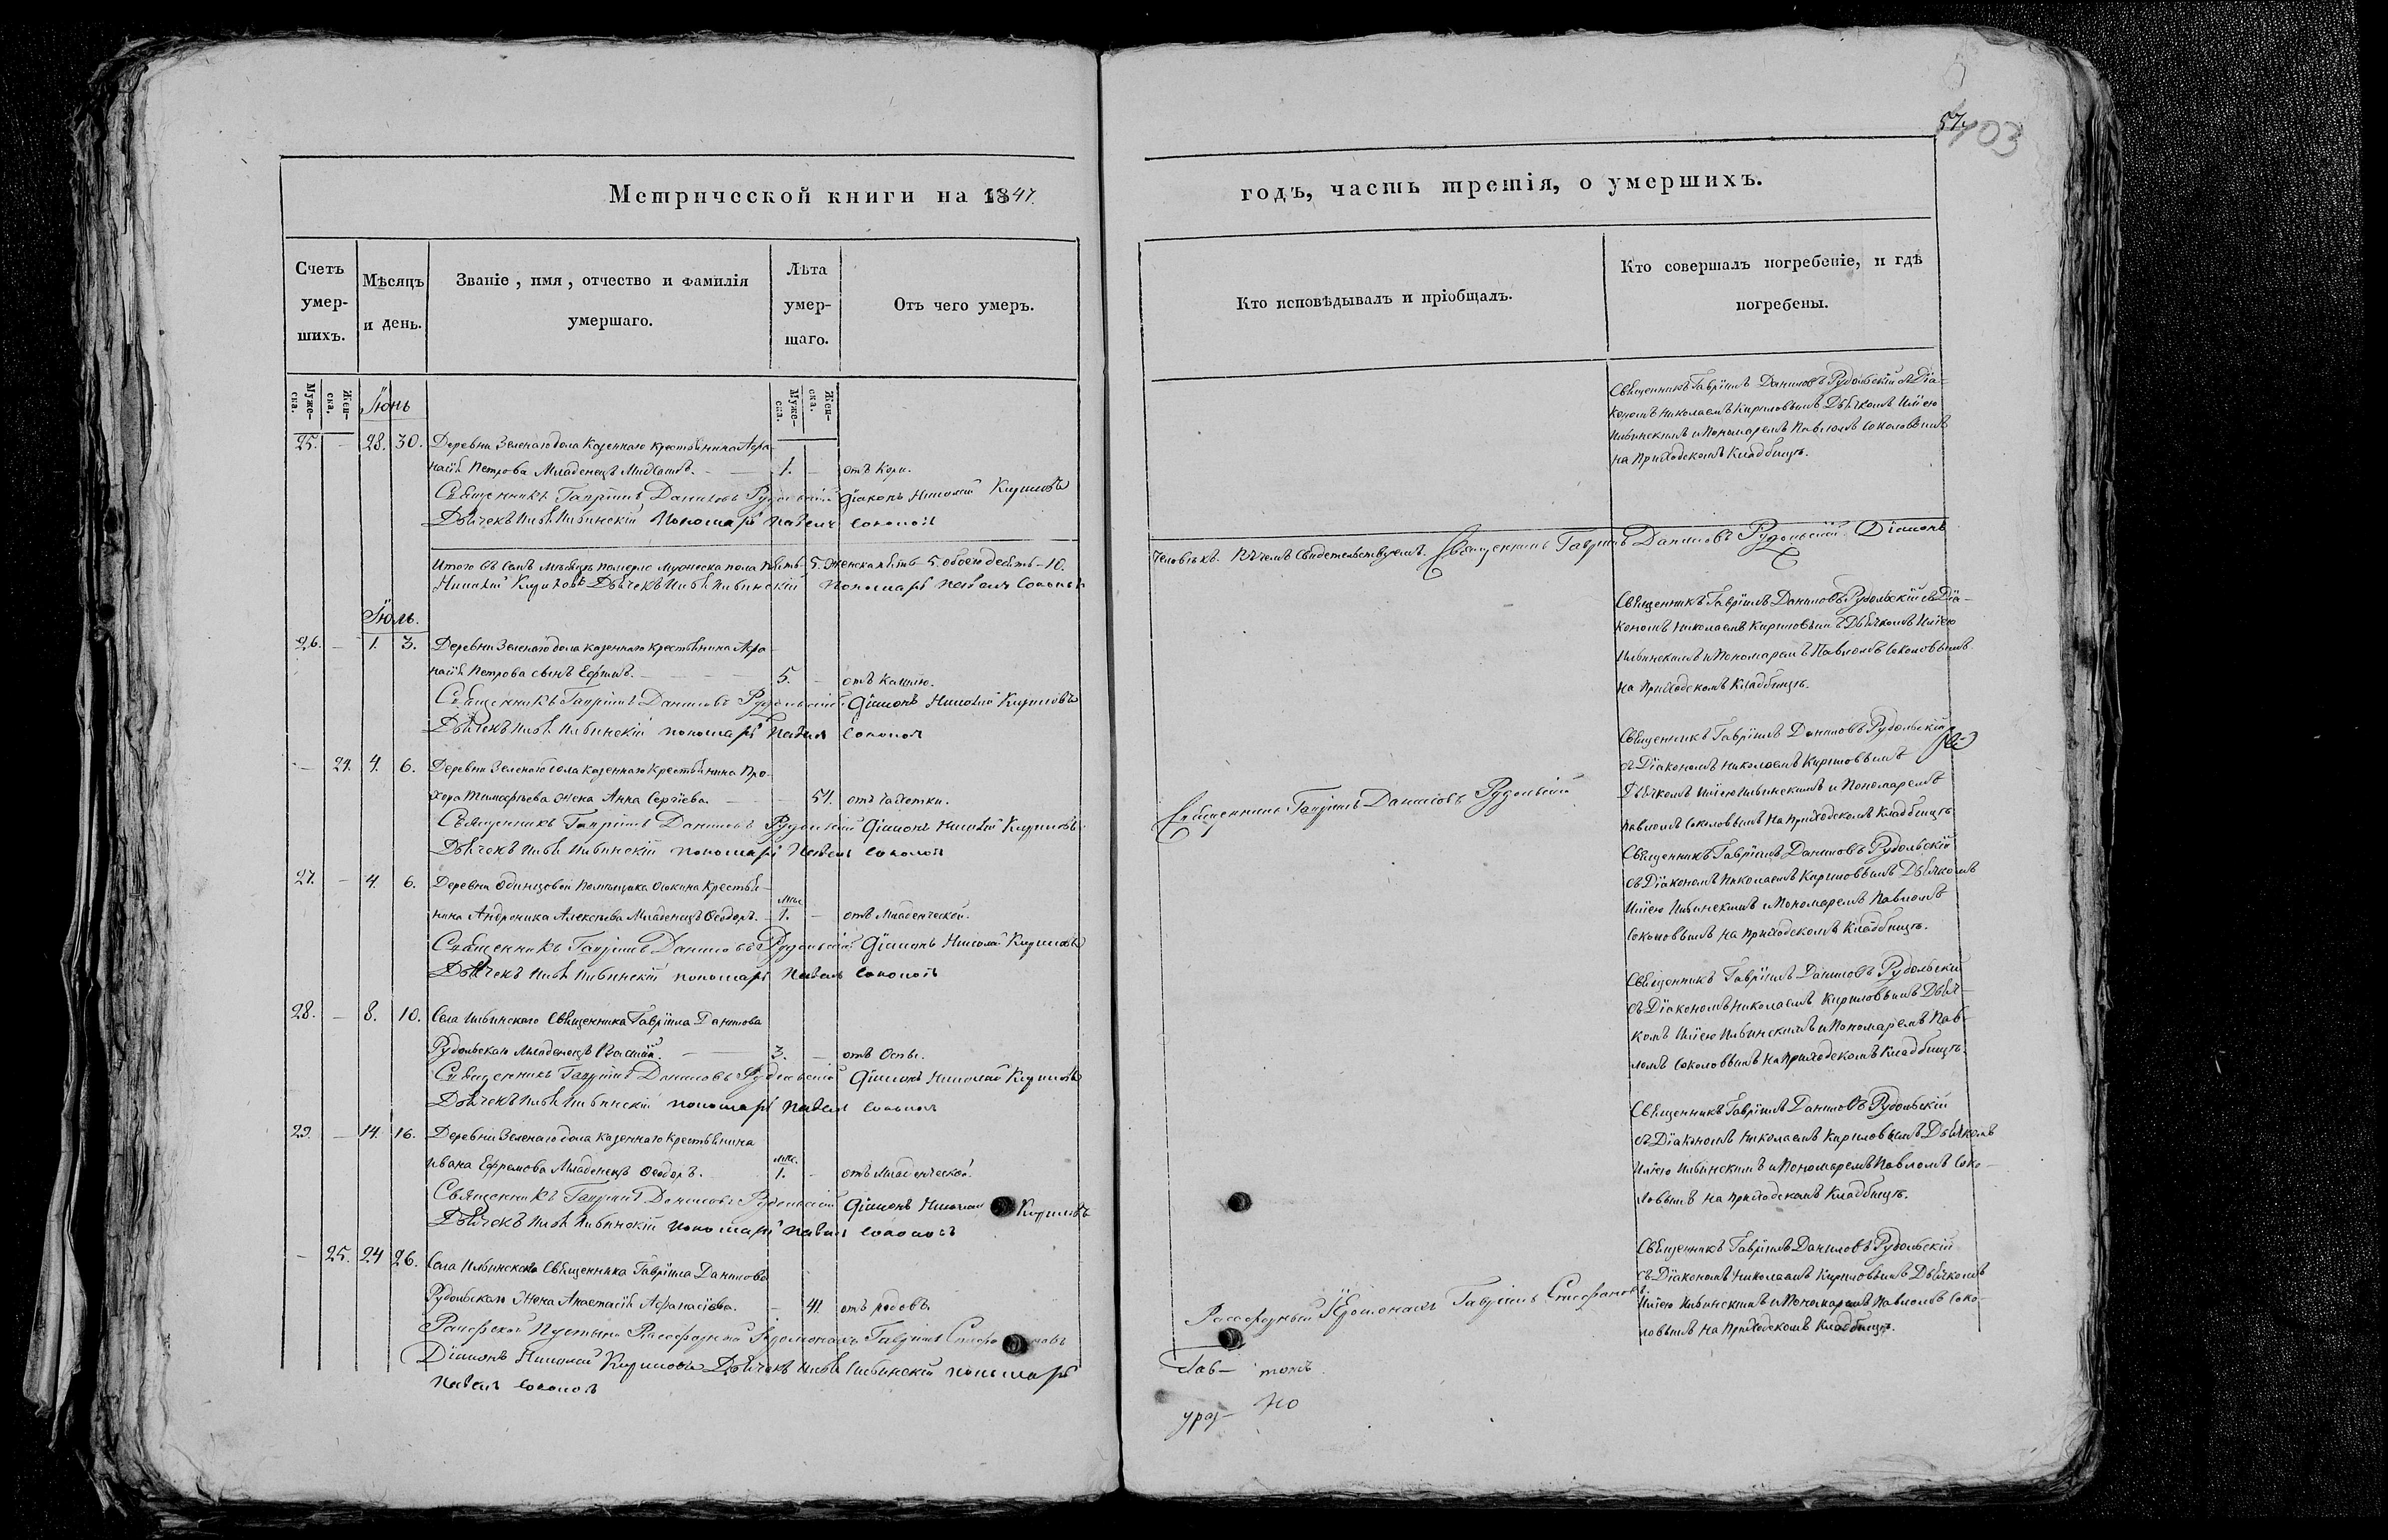 57.
103
Метрической книги на 1847.
годъ, часть третія, о умершихъ.
Счетъ умер-шихъ.
Мѣсяцъ и день.
Званіе, имя, отчество и фамилія умершаго.
Лѣта умер-шаго.
Отъ чего умеръ.
Кто исповѣдывалъ и пріобщалъ.
Кто совершалъ погребеніе, и гдѣ погребены.
Муже-ска.
Жен-ска.
Іюнь
Муже-ска.
Жен-ска.
25. — 28. 30. Деревни Зеленаго дола казеннаго крестьянина Афа-
насія Петрова Младенецъ — 1. — отъ Кори.
Священникъ Гавріилъ Даниловъ Рудольскій Діаконъ Николай Кириловъ
Дьячекъ Илья Ильинскій Пономарь Павелъ Соколовъ
Священникъ Гавріилъ Даниловъ Рудольскій съ Діа-
кономъ Николаемъ Кириловымъ Дьячкомъ Иліею
Ильинскимъ и Пономаремъ Павломъ Соколовымъ
на Приходскомъ Кладбищѣ.
Итого въ семъ мѣсяцѣ померло мужеска пола пять 5. женска пять — 5. обоего десять — 10.
Человѣкъ. Въ чемъ свидетельствуемъ. Священникъ Гавріилъ Даниловъ Рудольскій Діаконъ
Николай Кириловъ Дьячекъ Илья Ильинскій Пономарь Павелъ Соколовъ
Іюль.
26. — 1. 3. Деревни Зеленаго дола казеннаго крестьянина Афа-
насія Петрова сынъ Ефимъ. — 5. — отъ Кашлю.
Священникъ Гавріилъ Даниловъ Рудольскій Діаконъ Николай Кириловъ
Дьячекъ Илья Ильинскій пономарь Павелъ Соколовъ
Священникъ Гавріилъ Даниловъ Рудольскій съ Діа-
кономъ Николаемъ Кириловымъ Дьячкомъ Иліею
Ильинскимъ и Пономаремъ Павломъ Соколовымъ
на Приходскомъ Кладбищѣ.
— 24. 4. 6. Деревни Зеленаго дола казеннаго крестьянина Про-
хора Тимофѣева жена Анна Сергіева. — отъ чахотки.
Священникъ Гавріилъ Даниловъ Рудольскій Діаконъ Николай Кириловъ
Дьячекъ Илья Ильинскій пономарь Павелъ Соколовъ
Священникъ Гавріилъ Даниловъ Рудольскій
Священникъ Гавріилъ Даниловъ Рудольскій
съ Діакономъ Николаемъ Кириловымъ
Дьячкомъ Иліею Ильинскимъ и Пономаремъ
Павломъ Соколовымъ на Приходскомъ Кладбищѣ
27. — 4. 6. Деревни Одинцовой помѣщика крестья-
нина Андроника Алексѣева Младенецъ Ѳеодоръ. — 1. — отъ Младенческой.
Священникъ Гавріилъ Даниловъ Рудольскій Діаконъ Николай Кириловъ
Дьячекъ Илья Ильинскій пономарь Павелъ Соколовъ
Священникъ Гавріилъ Даниловъ Рудольскій
съ Діакономъ Николаемъ Кириловымъ Дьячкомъ
Иліею Ильинскимъ и Пономаремъ Павломъ
Соколовымъ на Приходскомъ Кладбищѣ.
28. — 8. 10. Села Ильинскаго Священника Гавріила Данилова
Рудольскаго Младенецъ Василій. — 3. — отъ Оспы.
Священникъ Гавріилъ Даниловъ Рудольскій Діаконъ Николай Кириловъ
Дьячекъ Илья Ильинскій пономарь Павелъ Соколовъ
Священникъ Гавріилъ Даниловъ Рудольскій
съ Діакономъ Николаемъ Кириловымъ Дьяч-
комъ Иліею Ильинскимъ и Пономаремъ Пав-
ломъ Соколовымъ на Приходскомъ Кладбищѣ.
29. — 14. 16. Деревни Зеленаго дола казеннаго крестьянина
Ивана Ефремова Младенецъ Ѳеодоръ. — 1. — отъ Младенческой.
Священникъ Гавріилъ Даниловъ Рудольскій Діаконъ Николай Кириловъ
Дьячекъ Илья Ильинскій пономарь Павелъ Соколовъ
Священникъ Гавріилъ Даниловъ Рудольскій
съ Діакономъ Николаемъ Кириловымъ Дьячкомъ
Иліею Ильинскимъ и Пономаремъ Павломъ Соко-
ловымъ на Приходскомъ Кладбищѣ.
— 25. 24 26. Села Ильинскаго Священника Гавріила Данилова
Рудольскаго Жена Анастасія Афанасіева. — 41. отъ родовъ
Раифской Пустыни Іеромонахъ Гавріилъ
Діаконъ Николай Кириловъ Дьячекъ Илья Ильинскій пономарь
Павелъ Соколовъ
Іеромонахъ Гавріилъ Стефановъ.
Священникъ Гавріилъ Даниловъ Рудольскій
съ Діакономъ Николаемъ Кириловымъ Дьячкомъ
Иліею Ильинскимъ и Пономаремъ Павломъ Соко-
ловымъ на Приходскомъ Кладбищѣ.